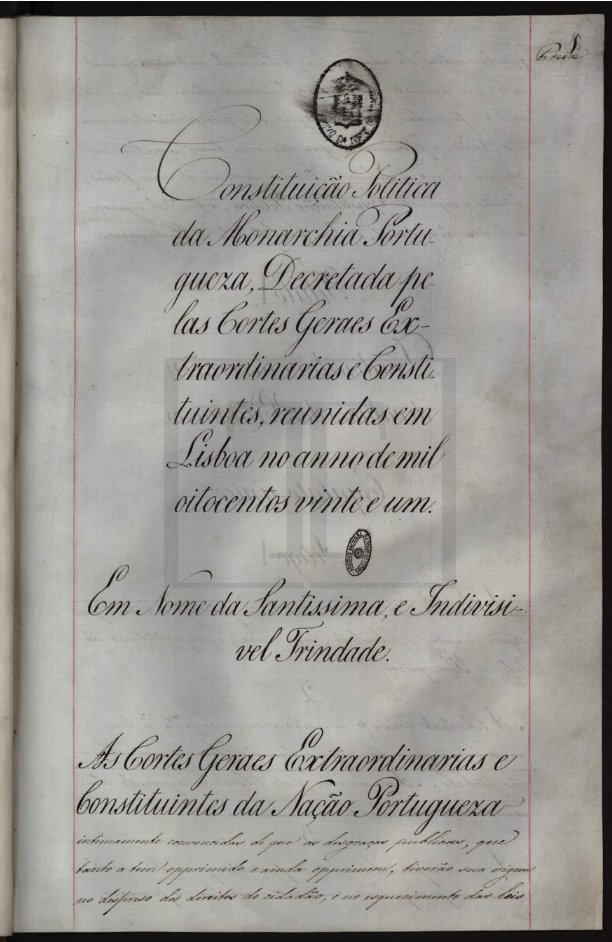 1
Constituição Politica
da Monarchia Portu-
gueza, Decretada pe-
las Cortes Geraes Ex-
traordinarias e Consti-
tuintes, reunidas em
Lisboa no anno de mil
oitocentos vinte e um.
Em Nome da Santissima, e Indivisi-
vel Trindade.
As Cortes Geraes Extraordinarias e
Constituintes da Nação Portugueza
intimamente convencidas de que as desgraças publicas, que
tanto a tem opprimido e ainda opprimem, tiverão sua origem
no despreso dos direitos do cidadão, e no esquecimento das leis